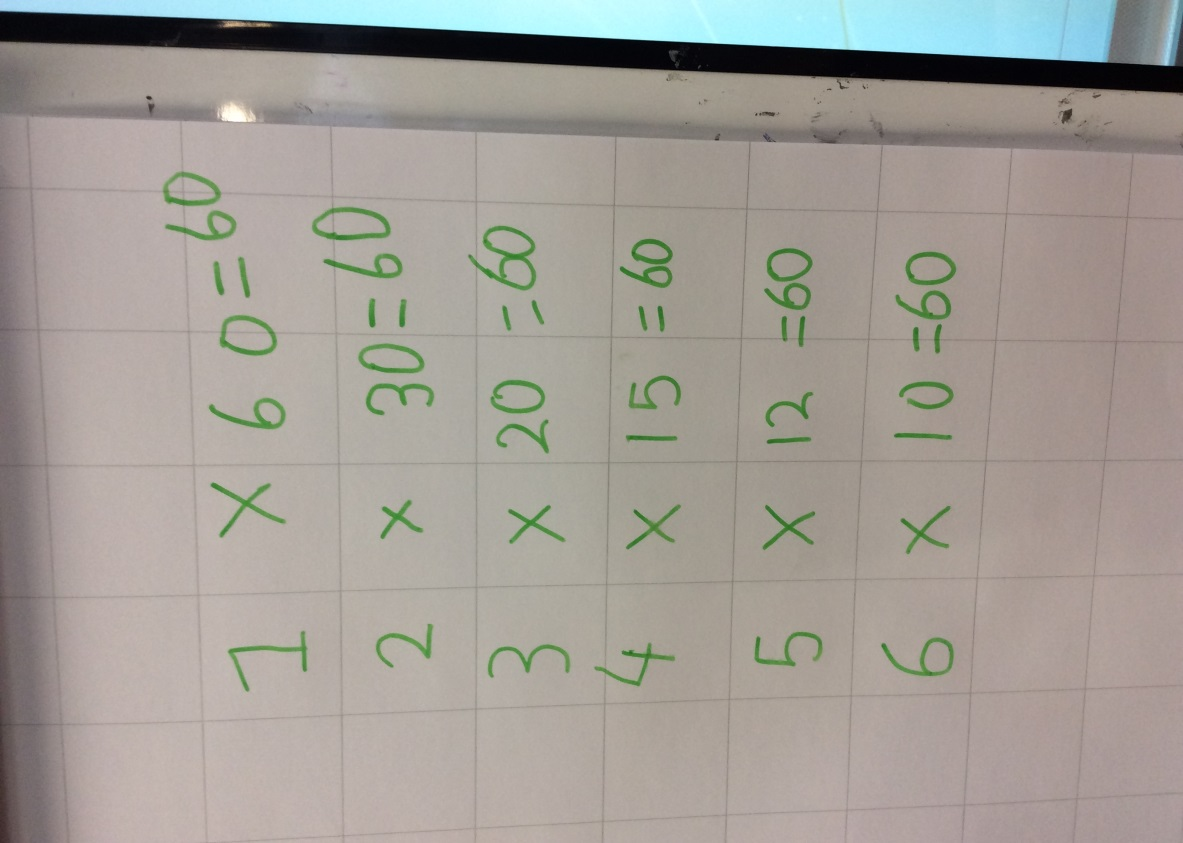 1 X 60=60
2 x 30=60
3 X 20 =60
4 X 15 =60
5 X 12 =60
6 X 10 =60